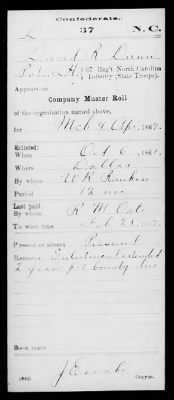 Confederate.
37 N.C.
37 Reg't North Carolina
Infantry (State Troops).
Appears on
Company Muster Roll
of the organization named above,
for Mch & Apr, 186
Enlisted:
When Oct 6, 186
Where Dallas
By whom W R Rankin
Period 12 mo
Last paid:
By whom R M Oats
To what time Feb 28, 186
Present or absent Present
Remarks: Enlistment extended
2 years $50 bounty due
Book mark:
(642) Copyist.